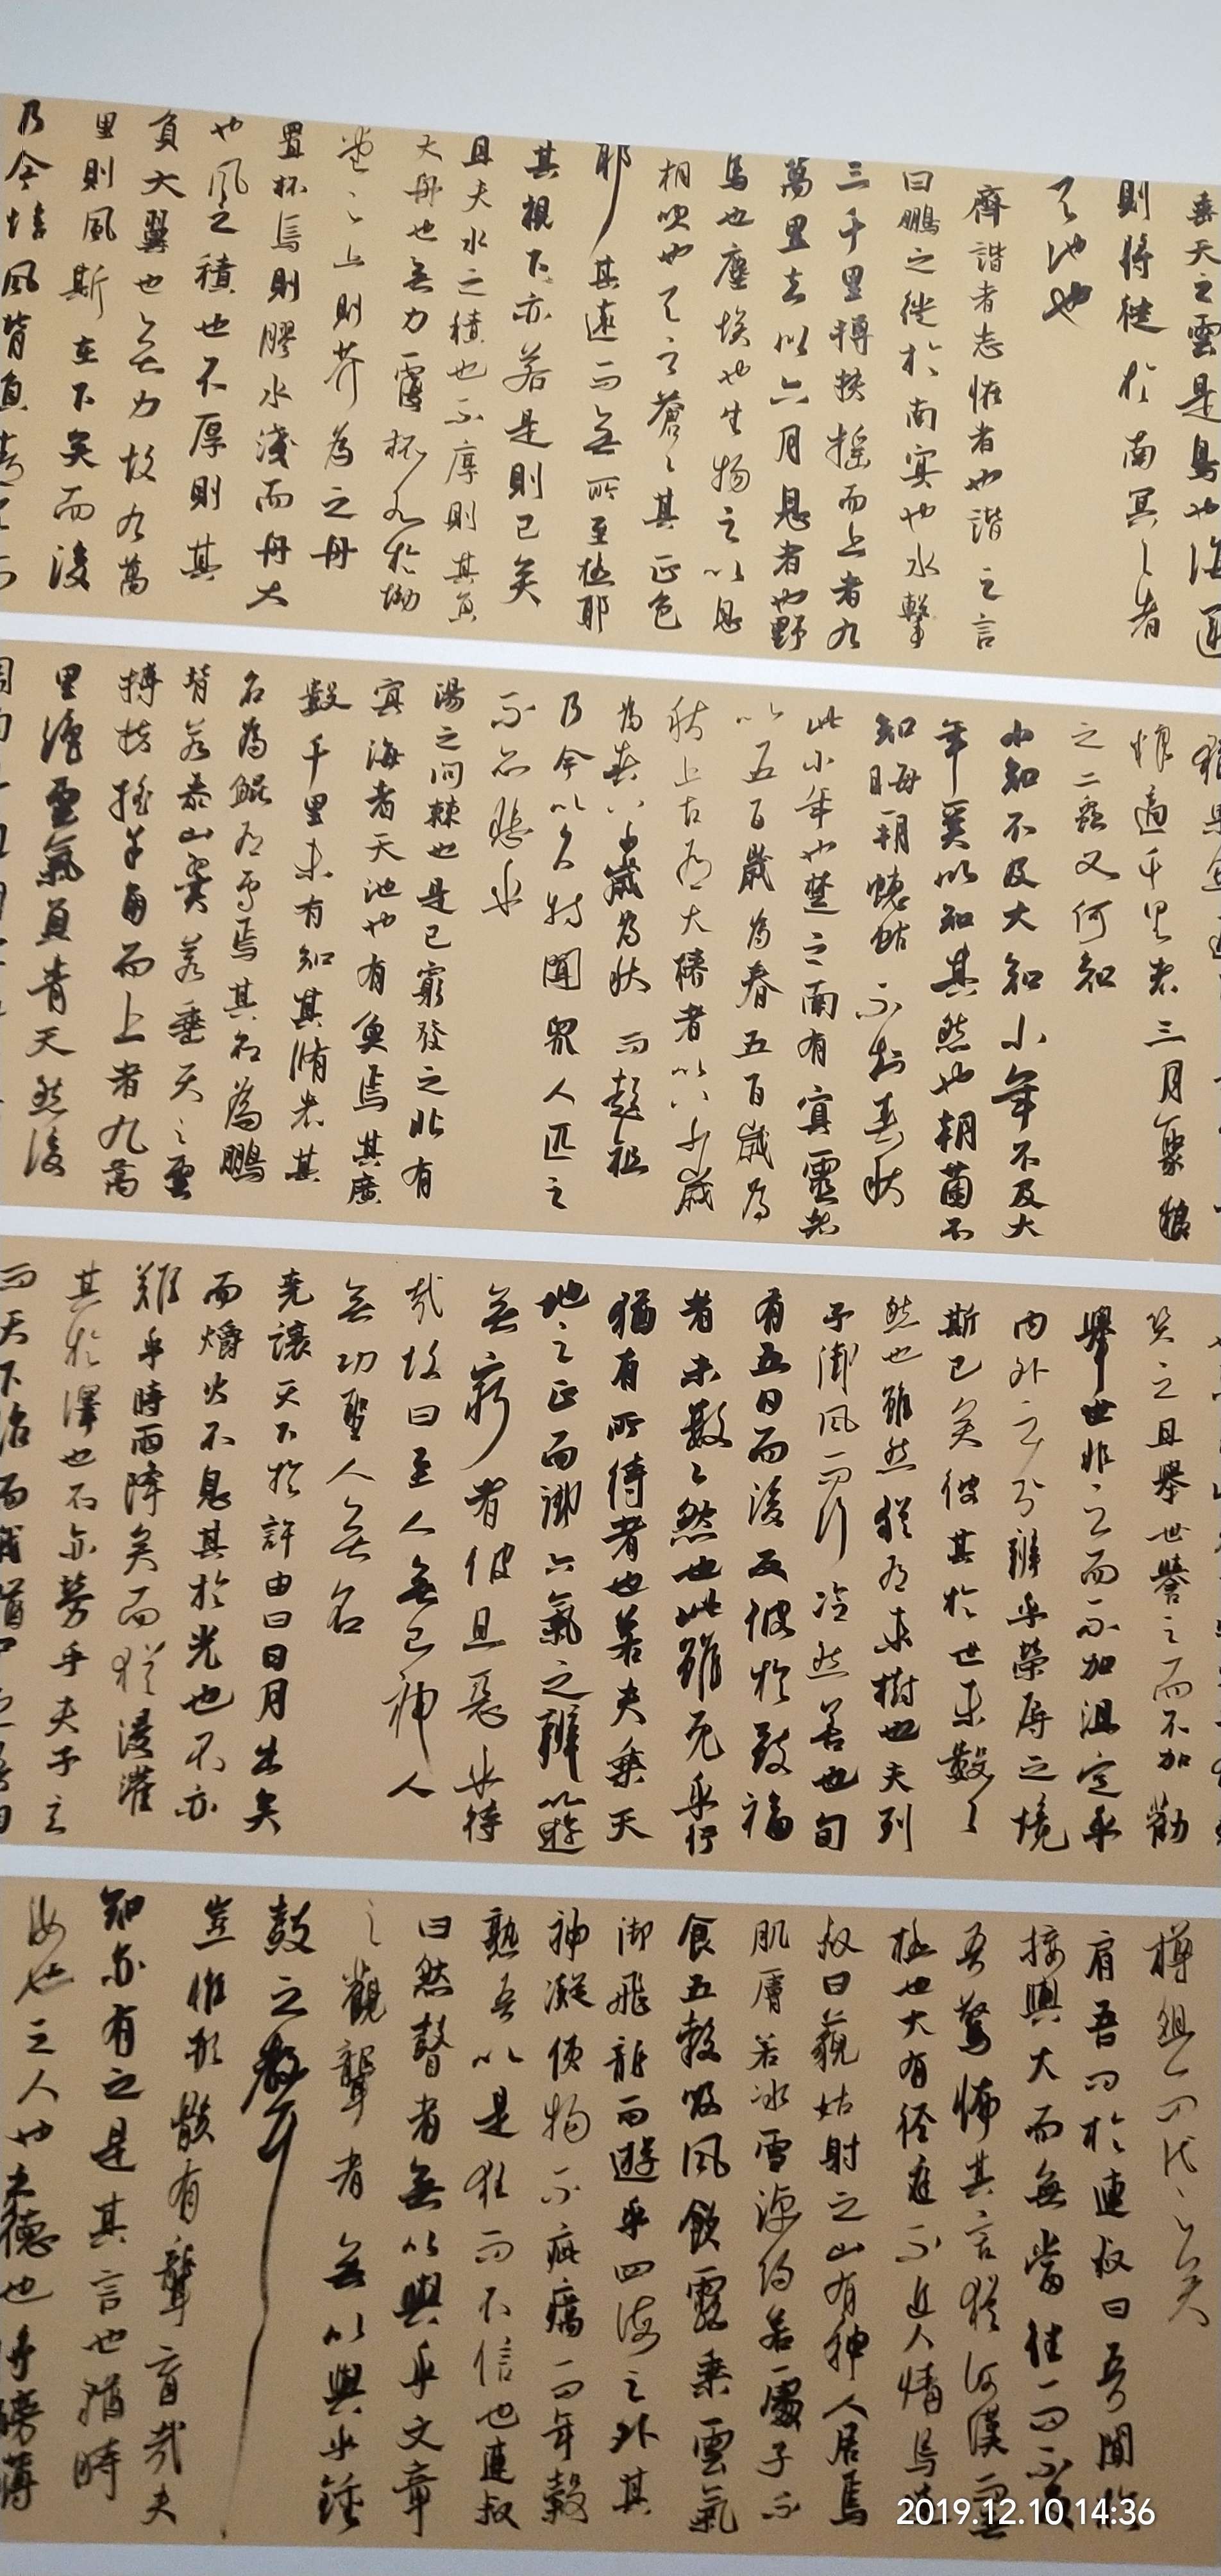 垂天之雲是鳥也海運
則將徙於南冥々者
天池也
齊諧者志怪者也諧之言
曰鵬之徙於南冥也水擊
三千里摶扶搖而上者九
萬里去以六月息者也野
馬也塵埃也生物之以息
相吹也天之蒼々其正色
耶其遠而無所至極耶
其視下亦若是則已矣
且夫水之積也不厚則其負
大舟也無力覆杯水於坳
堂之上則芥為之舟
置杯焉則膠水淺而舟大
也風之積也不厚則其
負大翼也無力故九萬
里則風斯在下矣而後
乃今培風背負青天而
猶果
糧適千里者三月聚糧
之二蟲又何知
小知不及大知小年不及大
年奚以知其然也朝菌不
知晦朔蟪蛄不知春秋
此小年也楚之南有冥靈者
以五百歲為春五百歲為
秋上古有大椿者以八千歲
為春八千歲為秋而彭祖
乃今以久特聞眾人匹之
不亦悲乎
湯之問棘也是已窮髮之北有
冥海者天池也有魚焉其廣
數千里未有知其脩者其
名為鯤有鳥焉其名為鵬
背若泰山翼若垂天之雲
摶扶搖羊角而上者九萬
里絕雲氣負青天然後
笑之且舉世譽之而不加勸
舉世非之而不加沮定乎
內外之分辨乎榮辱之境
斯已矣彼其於世未數々
然也雖然猶有未樹也夫列
子御風而行冷然善也旬
有五日而後反彼於致福
者未數々然也此雖免乎行
猶有所待者也若夫乘天
地之正而御六氣之辨以遊
無窮者彼且惡乎待
哉故曰至人無己神人
無功聖人無名
堯讓天下於許由曰日月出矣
而爝火不息其於光也不亦
難乎時雨降矣而猶浸灌
其於澤也不亦勞乎夫子立
而天下治而我猶尸之吾自
樽俎而代之矣
肩吾問於連叔曰吾聞於
接輿大而無當往而不反
吾驚怖其言猶河漢而無
極也大有徑庭不近人情焉連
叔曰藐姑射之山有神人居焉
肌膚若冰雪淖約若處子不
食五穀吸風飲露乘雲氣
御飛龍而遊乎四海之外其
神凝使物不疵癘而年穀
熟吾以是狂而不信也連叔
曰然瞽者無以與乎文章
之觀聾者無以與乎鍾
鼓之聲
豈惟形骸有聾盲哉夫
知亦有之是其言也猶時
汝也之人也之德也將磅礴
2019.12.10 14:36